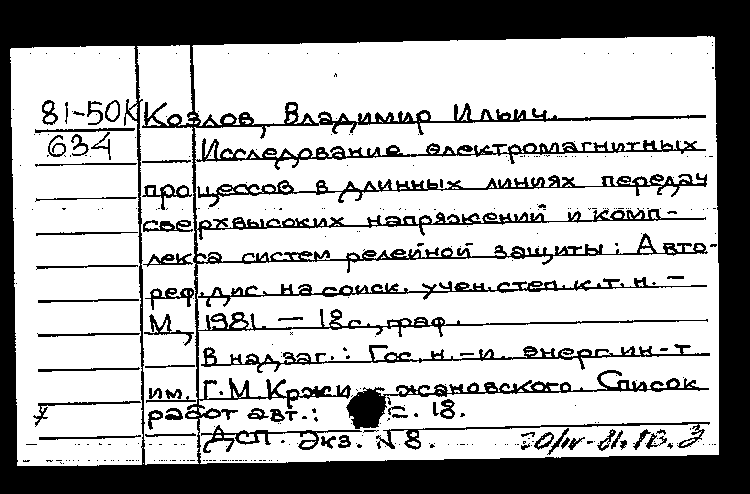 81-50К Козлов, Владимир Ильич.
634 Исследование электромагнитных
процессов в длинных линиях передач
сверхвысоких напряжений и комп-
лекса систем релейной защиты: Авто-
реф. дис. на соиск. учен. степ. к. т. н. -
М., 1981. - 18 с., граф.
В надзаг.: Гос. н.-и. энерг. ин-т
им. Г. М. Кржижановского. Список
работ авт.: с. 18.
ДСП. Экз. N 8.